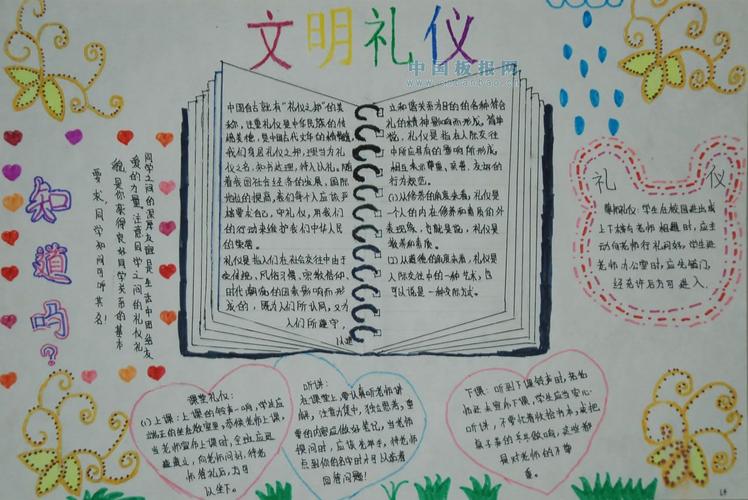 文明礼仪
中国板报网
中国自古就有“礼仪之邦”的美
称，注重礼仪是中华民族的传
我们身居礼仪之邦，理当为礼
仪之民，知书达理，待人以礼。随
着我国社会经济的发展，国际
地位的提高，我们每个人应该严
格要求自己，守礼仪，用我们
的行动来维护我们中华人民
的尊严。
礼仪是指人们在社会交往中由于
受传统，风俗习惯，宗教信仰，
时代潮流的因素影响而形
成的，既为人们所认同，又为
人们所遵守，
以建
立和谐关系为目的的各种符合
礼的精神
说，礼仪是指在人际交往
中所应具有的
相互表示尊重、友好的
行为规范。
(1)从修养的角度来看，礼仪是
一个人的内在修养和素质的外
表现
教养和素质。
(2)从道德的角度来看，礼仪是
人际交往中的一种艺术，也
可以说是一种交际方式。
知道吗？
同学之间的深厚友谊是生活中团结友
爱的力量，注意同学之间的礼仪礼
貌是你获得良好同学关系的基本
要求，同学知间可呼其名！
礼仪
尊师礼仪：学生在校园进出或
上下楼与老师相遇时，应主
动向老师行礼问好，学生进
老师办公室时，应先敲门，
经允许后方可进入．
课堂礼仪：
(1)上课：上课的铃声一响，学生应
端正的坐在教室里，恭候老师上课，
当老师宣布上课时，全班应迅
速肃立，向老师问好，待老
师答礼后，方可
以坐下。
听讲：
在课堂上，要认真听老师讲
解，注意力集中，独立思考，重
要的内容应做好笔记，当老师
提问时，应该先举手，待老师
点到你的名字时才可以站着
回答问题！
下课：听到下课铃声时，老
师还未宣布下课，学生应当安心
听讲，不要忙着收拾书本，或把
桌子弄的乒乓做响，这些都
是对老师的不尊
重。